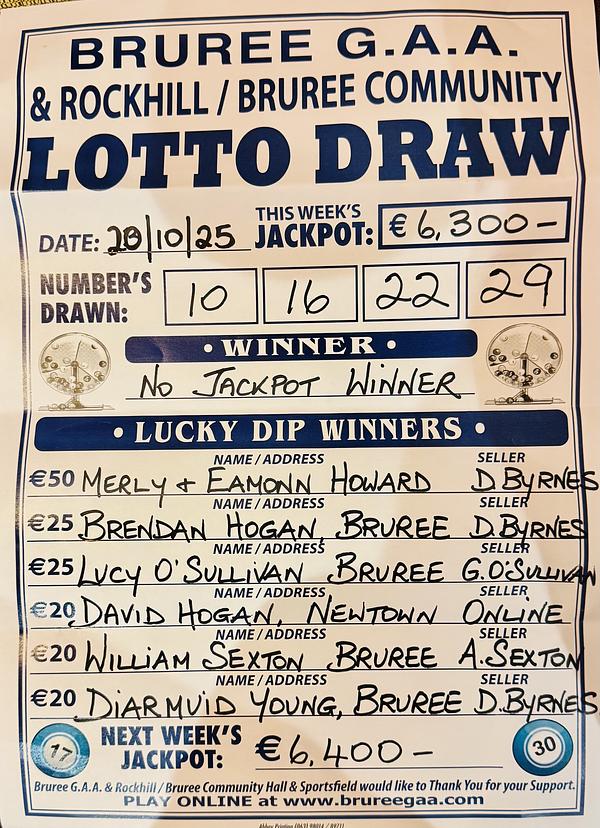 BRUREE G.A.A.
& ROCKHILL / BRUREE COMMUNITY
LOTTO DRAW
DATE: 20/10/25 THIS WEEK'S JACKPOT: €6,300-
NUMBER'S DRAWN: 10 16 22 29
• WINNER •
NO JACKPOT WINNER
• LUCKY DIP WINNERS •
NAME / ADDRESS SELLER
€50 MERLY + EAMONN HOWARD D BYRNES
NAME / ADDRESS SELLER
€25 BRENDAN HOGAN, BRUREE D.BYRNES
NAME / ADDRESS SELLER
€25 LUCY O'SULLIVAN BRUREE G.O'SULLIVAN
NAME / ADDRESS SELLER
€20 DAVID HOGAN, NEWTOWN ONLINE
NAME / ADDRESS SELLER
€20 WILLIAM SEXTON BRUREE A.SEXTON
NAME / ADDRESS SELLER
€20 DIARMUID YOUNG, BRUREE D.BYRNES
17 NEXT WEEK'S JACKPOT: €6,400- 30
Bruree G.A.A. & Rockhill / Bruree Community Hall & Sportsfield would like to Thank You for your Support.
PLAY ONLINE at www.brureegaa.com